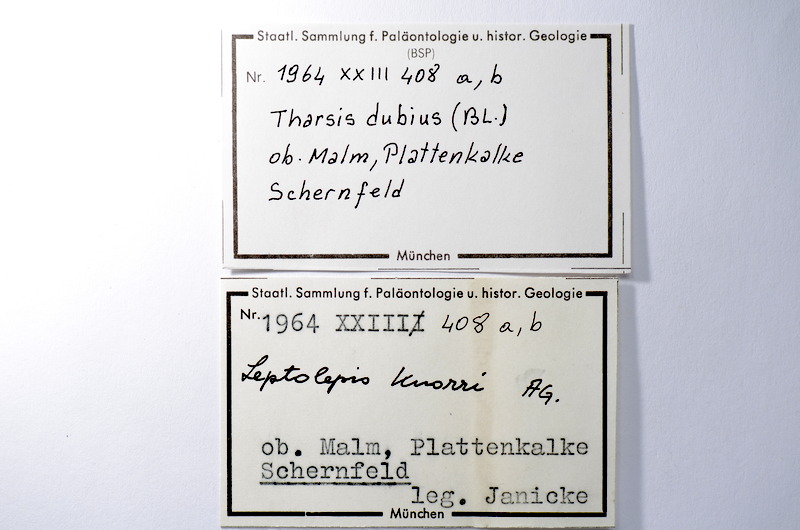 Staatl. Sammlung f. Paläontologie u. histor. Geologie
(BSP)
Nr. 1964 XXIII 408 a, b
Tharsis dubius (BL.)
ob. Malm, Plattenkalke
Schernfeld
München
Staatl. Sammlung f. Paläontologie u. histor. Geologie
Nr. 1964 XXIII 408 a, b
Leptolepis Knorri AG.
ob. Malm, Plattenkalke
Schernfeld
leg. Janicke
München